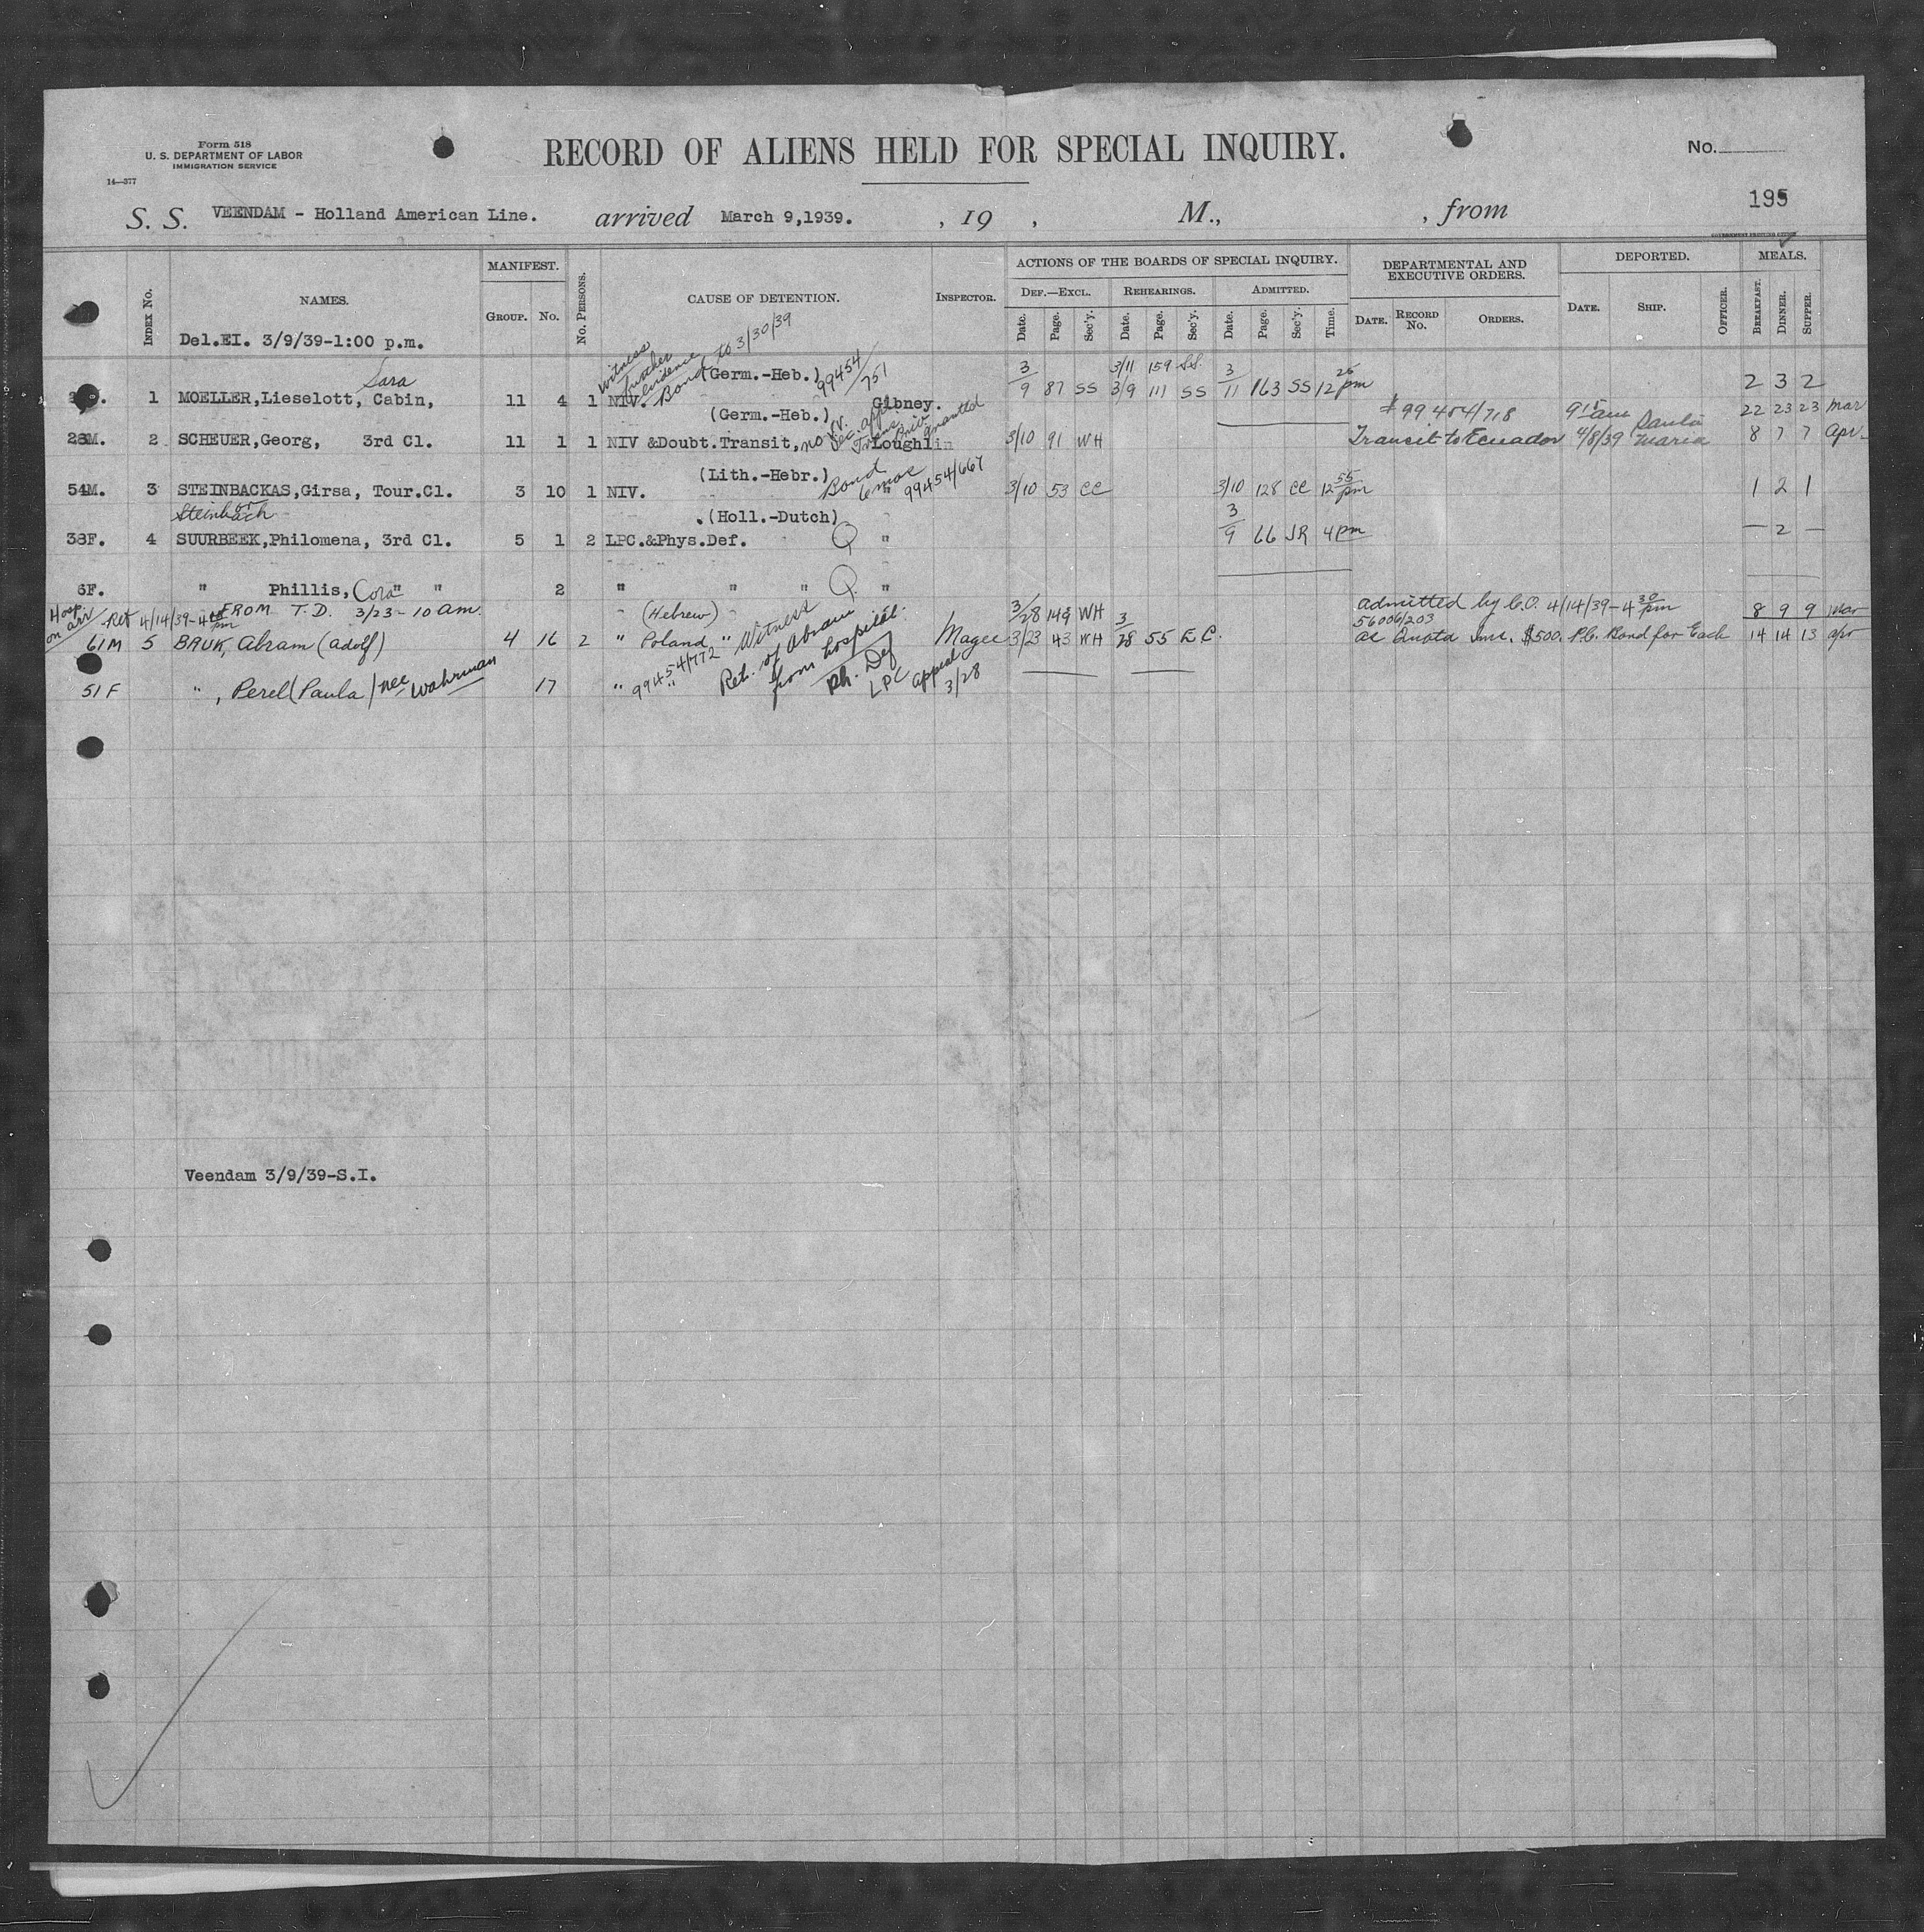 Form 518
U. S. DEPARTMENT OF LABOR
IMMIGRATION SERVICE
14—377
RECORD OF ALIENS HELD FOR SPECIAL INQUIRY.
No.
195
S. S. VEENDAM - Holland American Line. arrived March 9,1939. , 19 , M., , from
GOVERNMENT PRINTING OFFICE
INDEX No. NAMES. MANIFEST. GROUP. No. No. PERSONS. CAUSE OF DETENTION. INSPECTOR. ACTIONS OF THE BOARDS OF SPECIAL INQUIRY. DEPARTMENTAL AND EXECUTIVE ORDERS. DEPORTED. MEALS.
DEF.—EXCL. REHEARINGS. ADMITTED.
Date. Page. Sec'y. Date. Page. Sec'y. Date. Page. Sec'y. Time. DATE. RECORD No. ORDERS. DATE. SHIP. OFFICER. BREAKFAST. DINNER. SUPPER.
Del.EI. 3/9/39-1:00 p.m.
Witness further evidence Bond to 3/30/39
Sara (Germ.-Heb.) 99454/751 3/11 159 SS
1 MOELLER,Lieselott, Cabin, 11 4 1 NIV. Gibney. 3/9 87 SS 3/9 111 SS 3/11 163 SS 12 25 pm 2 3 2
(Germ.-Heb.) # 99454/718 9 15 am 22 23 23 Mar
28M. 2 SCHEUER,Georg, 3rd Cl. 11 1 1 NIV &Doubt.Transit, no rv. Loughlin 3/10 91 WH Transit to Ecuador 4/8/39 Santa Maria 8 7 7 Apr-
(Lith.-Hebr.) Bond 6 mos 99454/667
54M. 3 STEINBACKAS,Girsa, Tour.Cl. 3 10 1 NIV. " 3/10 53 CC 3/10 128 CC 12 55 pm 1 2 1
or Steinbach
(Holl.-Dutch)
38F. 4 SUURBEEK,Philomena, 3rd Cl. 5 1 2 LPC.&Phys.Def. Q " 3/9 66 JR 4 pm — 2 —
6F. " Phillis, Cora " " 2 " " " Q "
Hosp on arr Ret 4/14/39-4 pm FROM T.D. 3/23-10 am. (Hebrew) 3/28 149 WH admitted by C.O. 4/14/39-4 30 pm 8 9 9 Mar
56006/203
61M 5 BRUK, Abram (Adolf) 4 16 2 " Poland " Witness Magee 3/23 43 WH 3/28 55 E C. as Quota Imm. $500. P.C. Bond for Each 14 14 13 apr
51F " , Perel (Paula) nee Wahrman 17 " 99454/772 " Ret. of Abram from hospital. Ph. Def LPC appeal 3/28
Veendam 3/9/39-S.I.